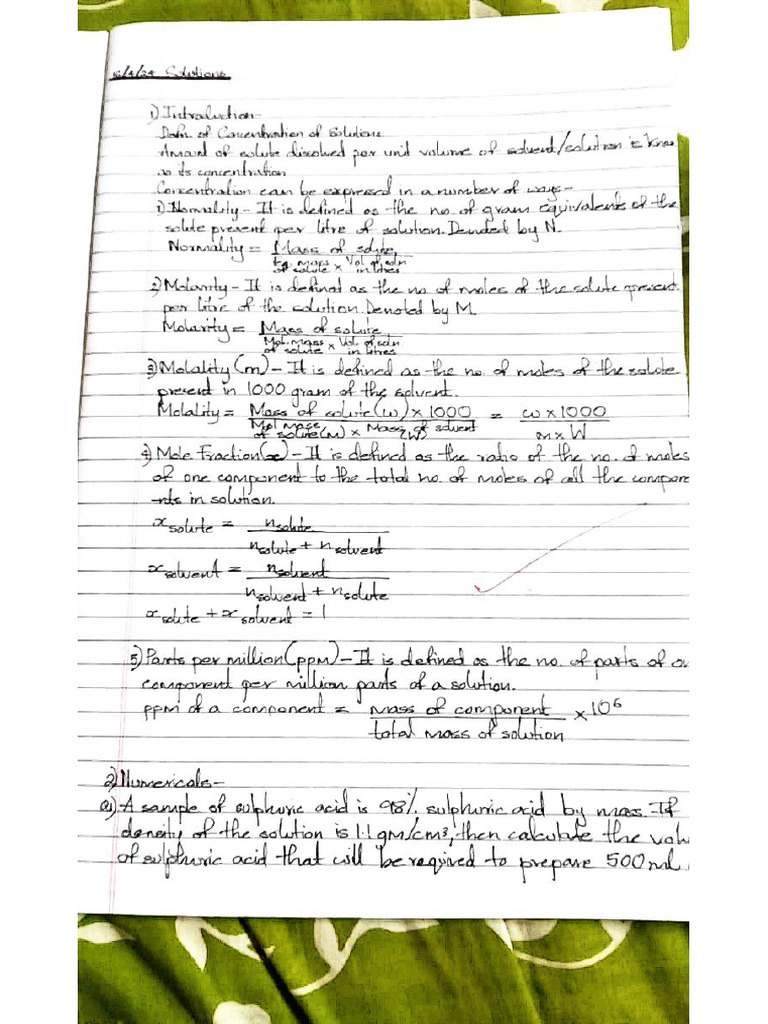 15/4/24 Solutions
1) Introduction-
Defn. of Concentration of Solutions
Amount of solute dissolved per unit volume of solvent/solution is know
as its concentration
Concentration can be expressed in a number of ways-
1) Normality - It is defined as the no. of gram equivalents of the
solute present per litre of solution. Denoted by N.
Normality = Mass of solute
Eq. mass of solute × Vol. of soln in litres
2) Molarity - It is defined as the no. of moles of the solute present
per litre of the solution. Denoted by M.
Molarity = Mass of solute
Mol. mass of solute × Vol. of soln in litres
3) Molality (m) - It is defined as the no. of moles of the solute
present in 1000 gram of the solvent.
Molality = Mass of solute (w) × 1000 = w × 1000
Mol mass of solute (M) × Mass of solvent (W) m × W
4) Mole Fraction (x) - It is defined as the ratio of the no. of moles
of one component to the total no. of moles of all the compone
-nts in solution.
x solute = n solute
n solute + n solvent
x solvent = n solvent
n solvent + n solute
x solute + x solvent = 1
5) Parts per million (ppm) - It is defined as the no. of parts of on
component per million parts of a solution.
ppm of a component = mass of component × 10⁶
total mass of solution
2) Numericals -
a) A sample of sulphuric acid is 98% sulphuric acid by mass. If
density of the solution is 1.1 gm/cm³, then calculate the volu
of sulphuric acid that will be required to prepare 500 ml